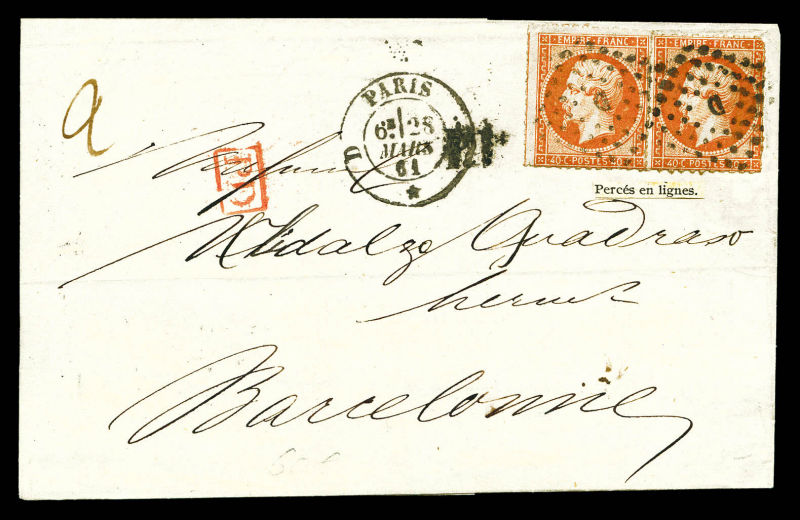 EMPIRE FRANC
EMPIRE FRANC
40·C·POSTES·40·C
40·C·POSTES·40·C
D
D
Percés en lignes.
PARIS
6E 28
MARS
61
D
P.D.
2
Hidalgo Quadraso
Barcelonne